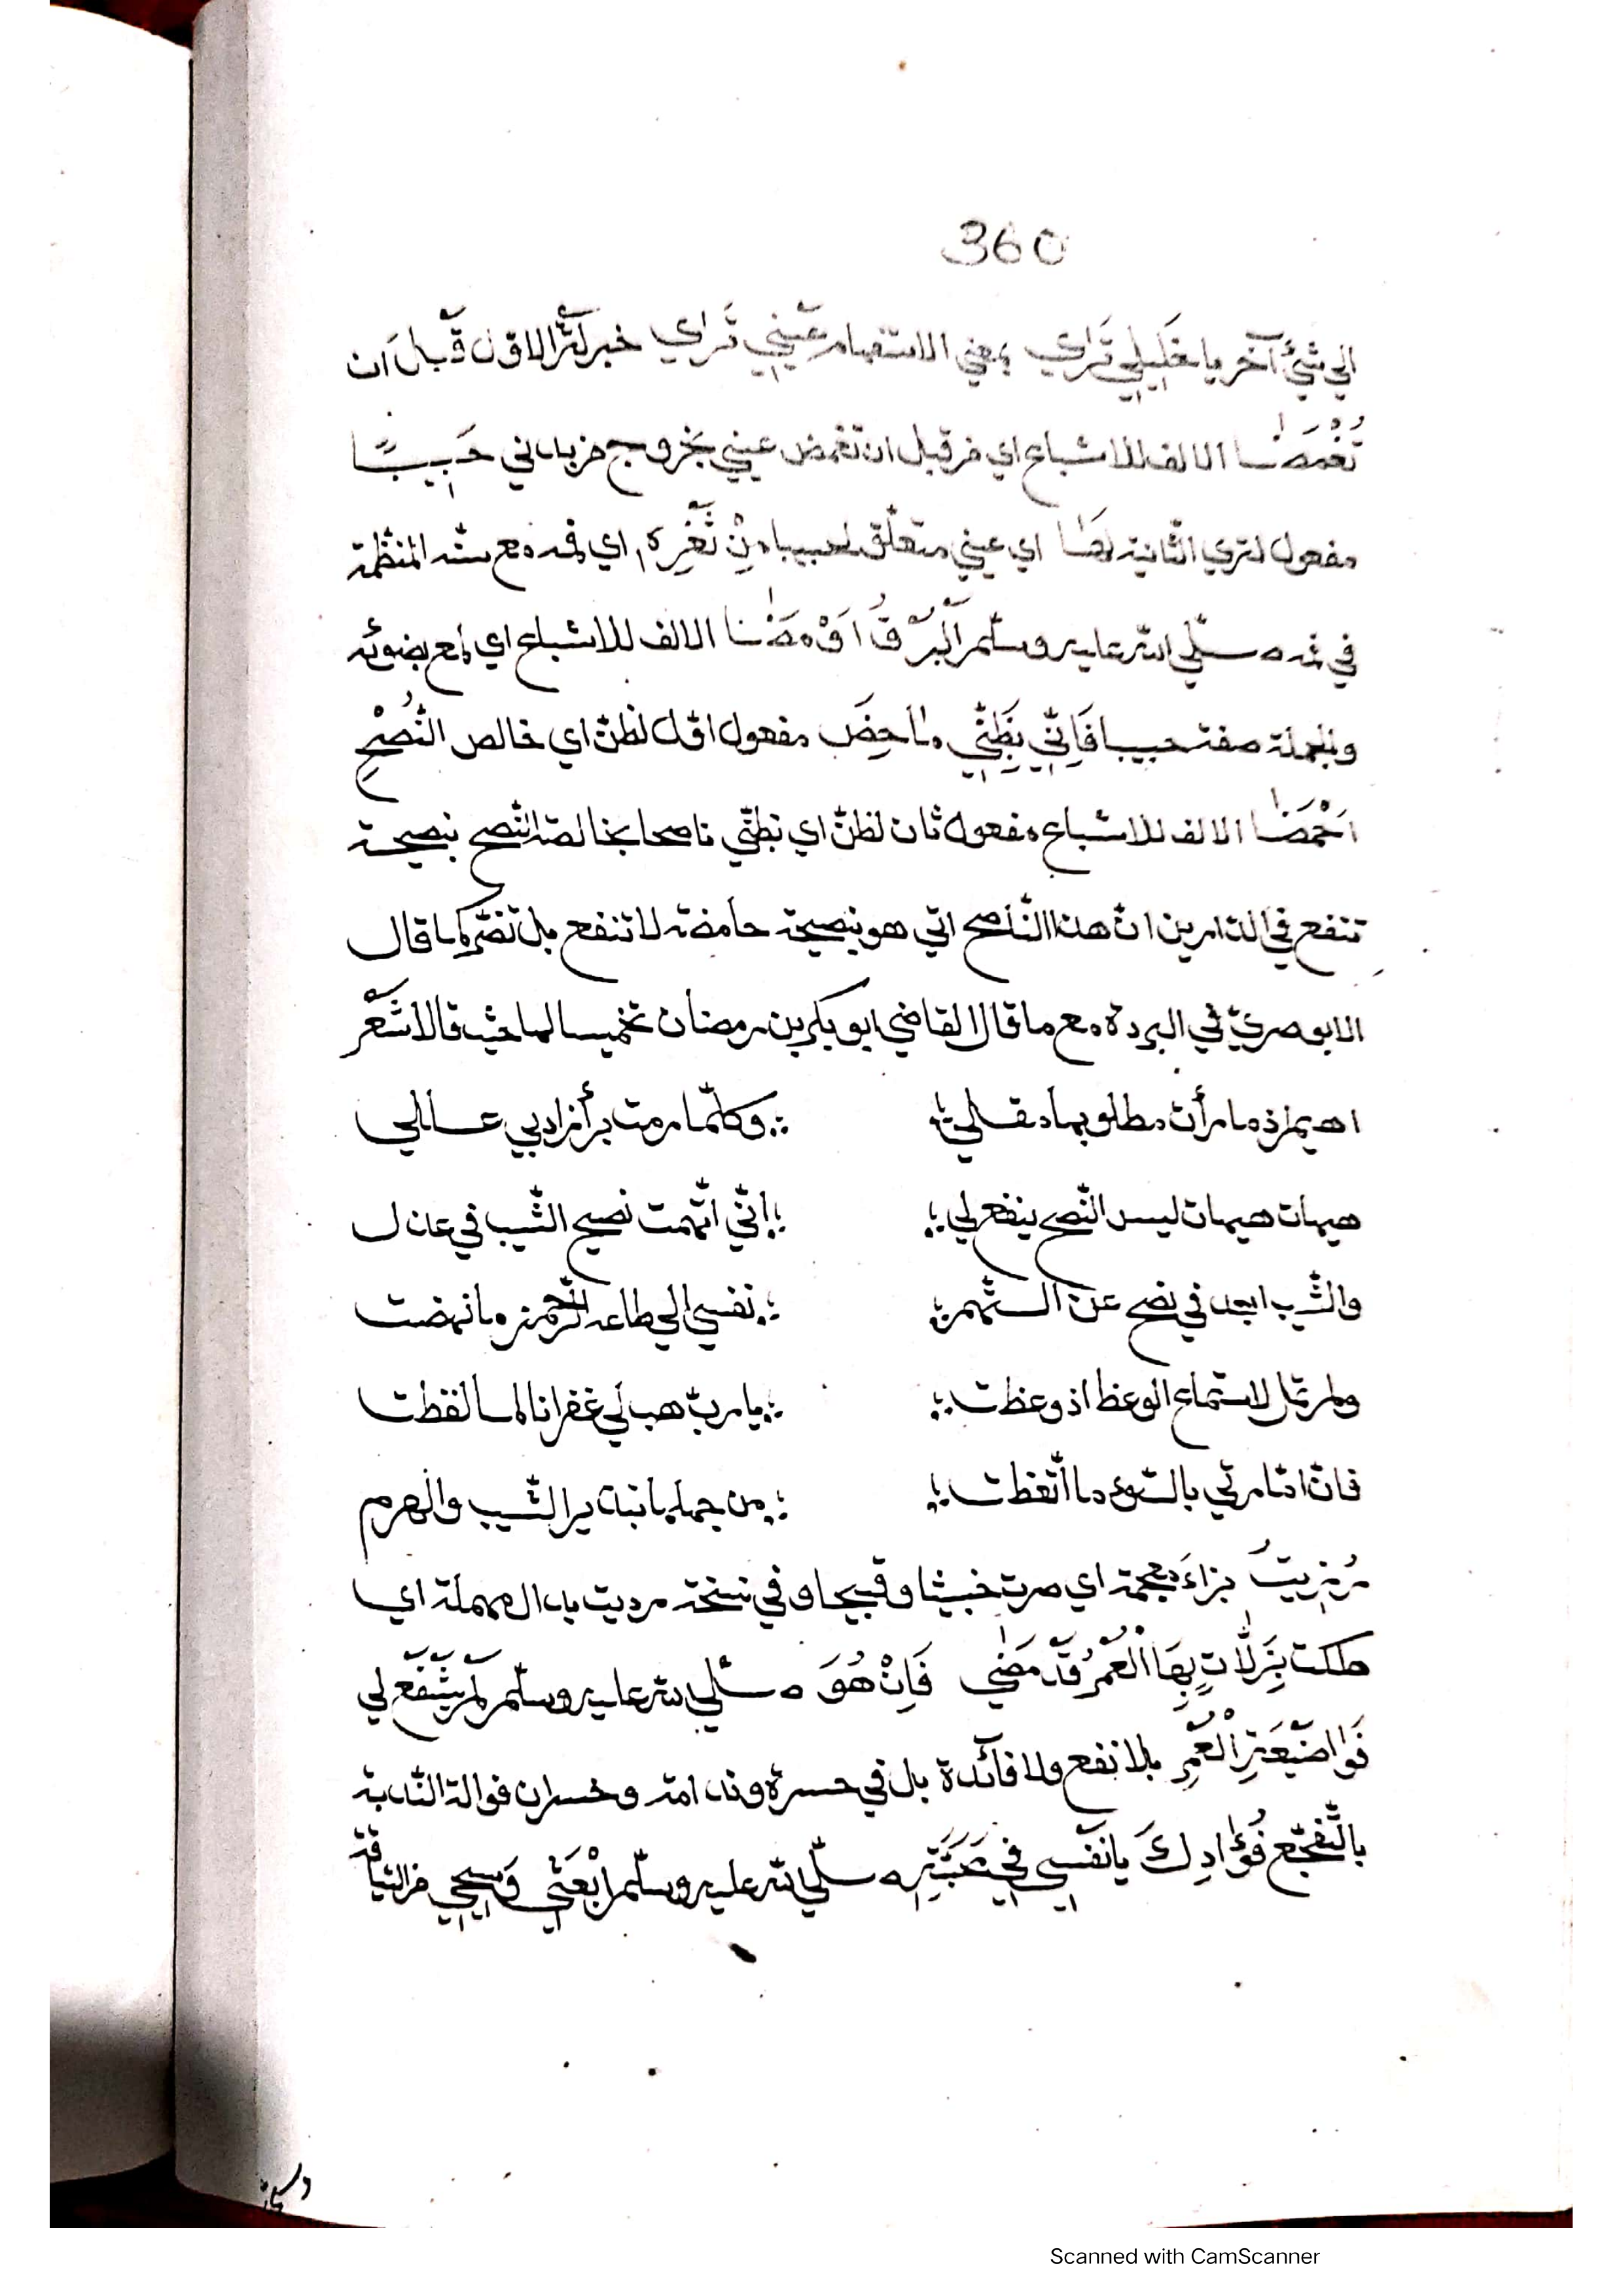 360
الي شيئ آخر يا خَلِيلِي تَرَاي بمعني الاستفهام عَيْنِي تَرَاي خبر لتر الاول قَبْلَ اَن
تُغْمَضَا الالف للاشباع اي من قبل ان تغمض عيني بخروج من بدني حَبِيبًا
مفعول لتري الثانية لَهَا اي عيني متعلق لحبيبا مِنْ ثَغْرِهِ اي فمه مع سنه المنظمة
في فمه صلّي الله عليه وسلّم الْبَرْقُ اَوْمَضَا الالف للاشباع اي لمع بضوئه
والجملة صفة حبيبا فَاِنِّي بِظَنِّي مَاحِضَ مفعول اوّل لظنّ اي خالص النُّصْحِ
اَحْمَضَا الالف للاشباع مفعول ثان لظنّ اي نظنّي ناصحا بخالصة النّصح بنصيحة
تنفع في الدارين انّ هذا النّاصح اتي هو بنصيحة حامضة لا تنفع بل تضرّ كما قال
الابوصريّ في البردة مع ما قال القاضي ابو بكر بن رمضان تخميسا لها حيث قالا شعر
اهيم اذ ما رأت مطلوبها مقلي ؛ وكلّما رمت برأ زاد بي عللي
هيهات هيهات ليس النّصح ينفع لي ؛ اِنّي اتّهمت نصيح الشّيب في عذل
والشّيب ابعد في نصح عن التّهم ؛ نفسي الي طاعة الرّحمن ما نهضت
ولم تمل لاستماع الوعظ اذ وعظت ؛ يا ربّ هب لي غفرانا لما لفظت
فانّ امّارتي بالسّوء ما اتّعظت ؛ من جهلها بنذير الشّيب والهرم
رُزِيتُ بزاء معجمة اي صرت خبيثا وقبيحا وفي نسخة رديت بدال مهملة اي
هلكت بِزَلَّاتٍ بِهَا الْعُمْرُ قَدْ مَضَي فَاِنْ هُوَ صلّي الله عليه وسلّم لَمْ يَشْفَعْ لِي
فَوَا ضَيْعَةَ الْعُمْرِ بلا نفع ولا فائدة بل في حسرة وندامة وخسران فوا لة النّدبة
بالتّفجّع فُؤَادِكَ يا نَفْسِي فِي مَحَبَّتِهِ صلّي الله عليه وسلّم ابْعَثِي وَسِيحِي من السّياقة